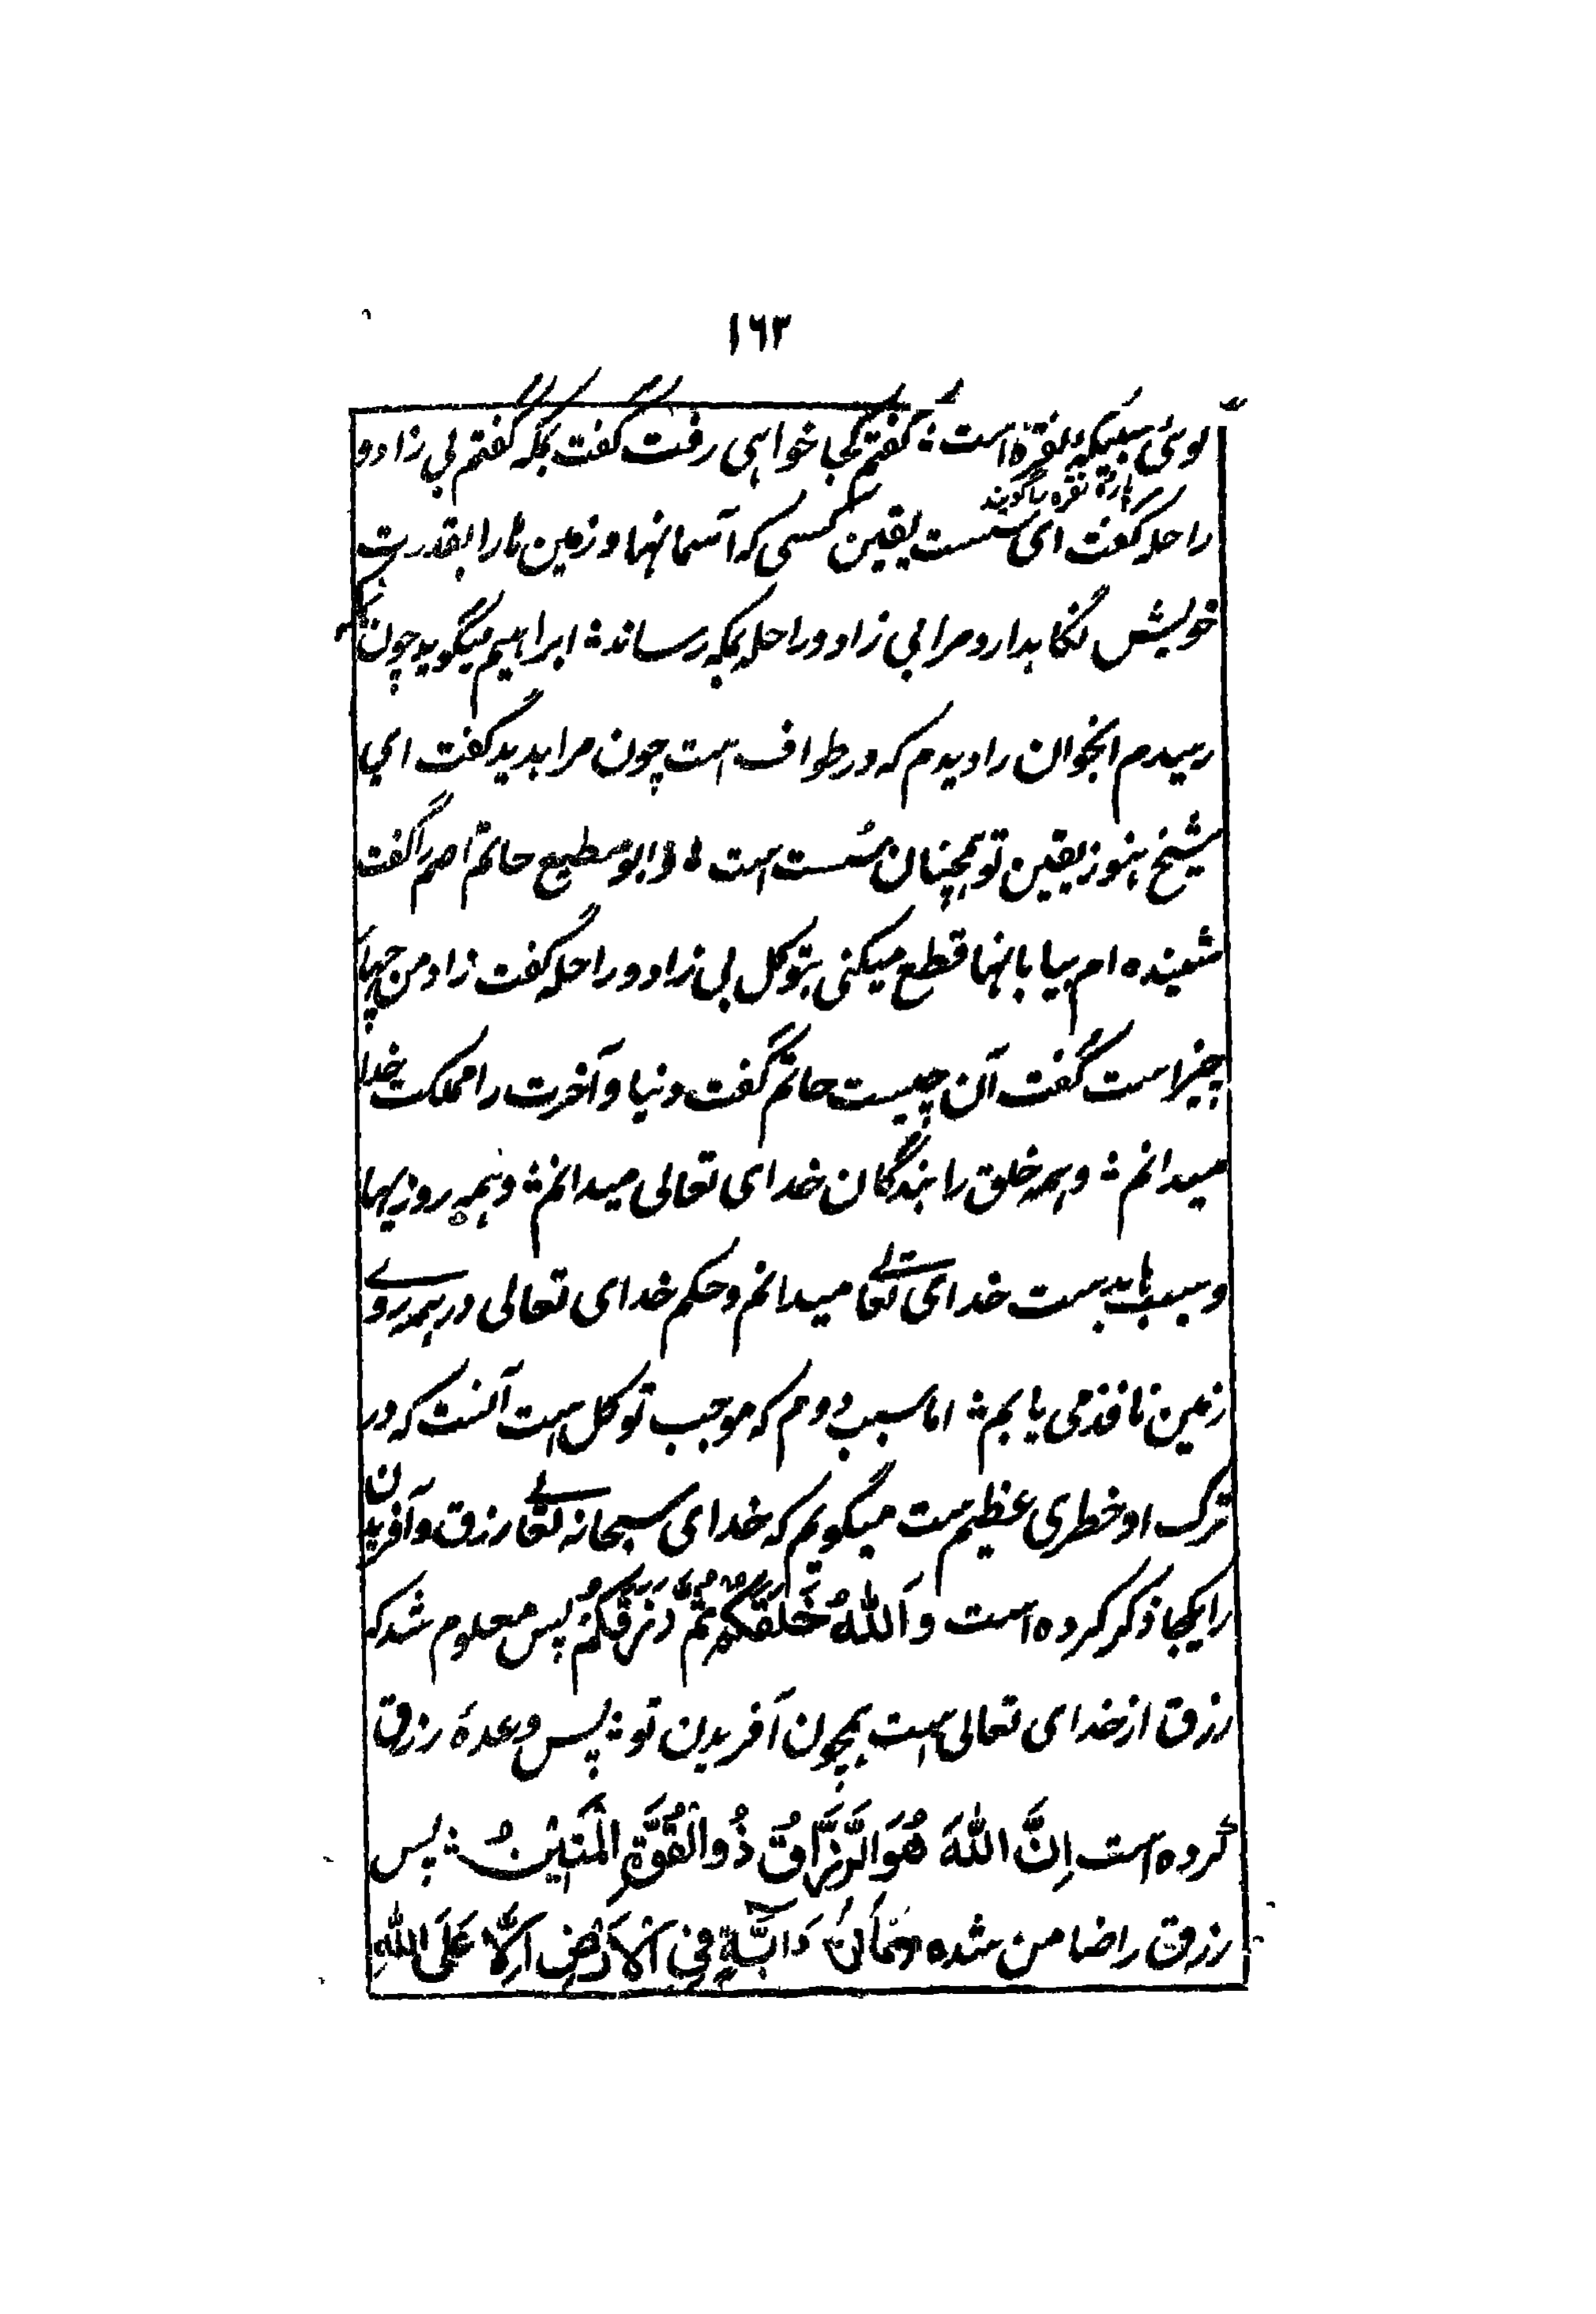 ١٦٣
گوئی سبیکهٔ نقره است؛ گفتم کجا خواهی رفت گفت بمکه گفتم بی زاد و
پارهٔ نقره را گویند
راحله گفت ای سست یقین کسی که آسمانها و زمین ها را بقدرت
خویش نگاهدارد مرا بی زاد و راحله بمکه رساند؛ ابراهیم میگوید چون بمکه
رسیدم آنجوان را دیدم که در طواف است چون مرا بدید گفت ای
شیخ هنوز یقین تو همچنان سست است؛ و ابو مطیع حاتم اصم را گفت
شنیده ام بیابانها قطع میکنی بتوکل بی زاد و راحله گفت زاد من چهار
چیز است گفت آن چیست حاتم گفت دنیا و آخرت را مملکت خدا
میدانم؛ و همه خلق را بندگان خدای تعالی میدانم؛ و همه روزیها
و سببها بدست خدای تعالے میدانم و حکم خدای تعالی در همه روے
زمین نافذ می یابم؛ اما سبب دوم که موجب توکل است آنست که در
ترک او خطری عظیم ست میگویم که خدای سبحانه تعالے رزق و آفریدن
را یکجا ذکر کرده است وَاللّٰهُ خَلَقَكُمْ ثُمَّ رَزَقَكُمْ پس معلوم شد که
رزق از خدای تعالی است همچون آفریدن تو؛ پس وعدهٔ رزق
کرده است اِنَّ اللّٰهَ هُوَ الرَّزَّاقُ ذُو الْقُوَّةِ الْمَتِيْنُ؛ پس
رزق را ضامن شده وَمَا مِنْ دَابَّةٍ فِي الْاَرْضِ اِلَّا عَلَى اللّٰهِ